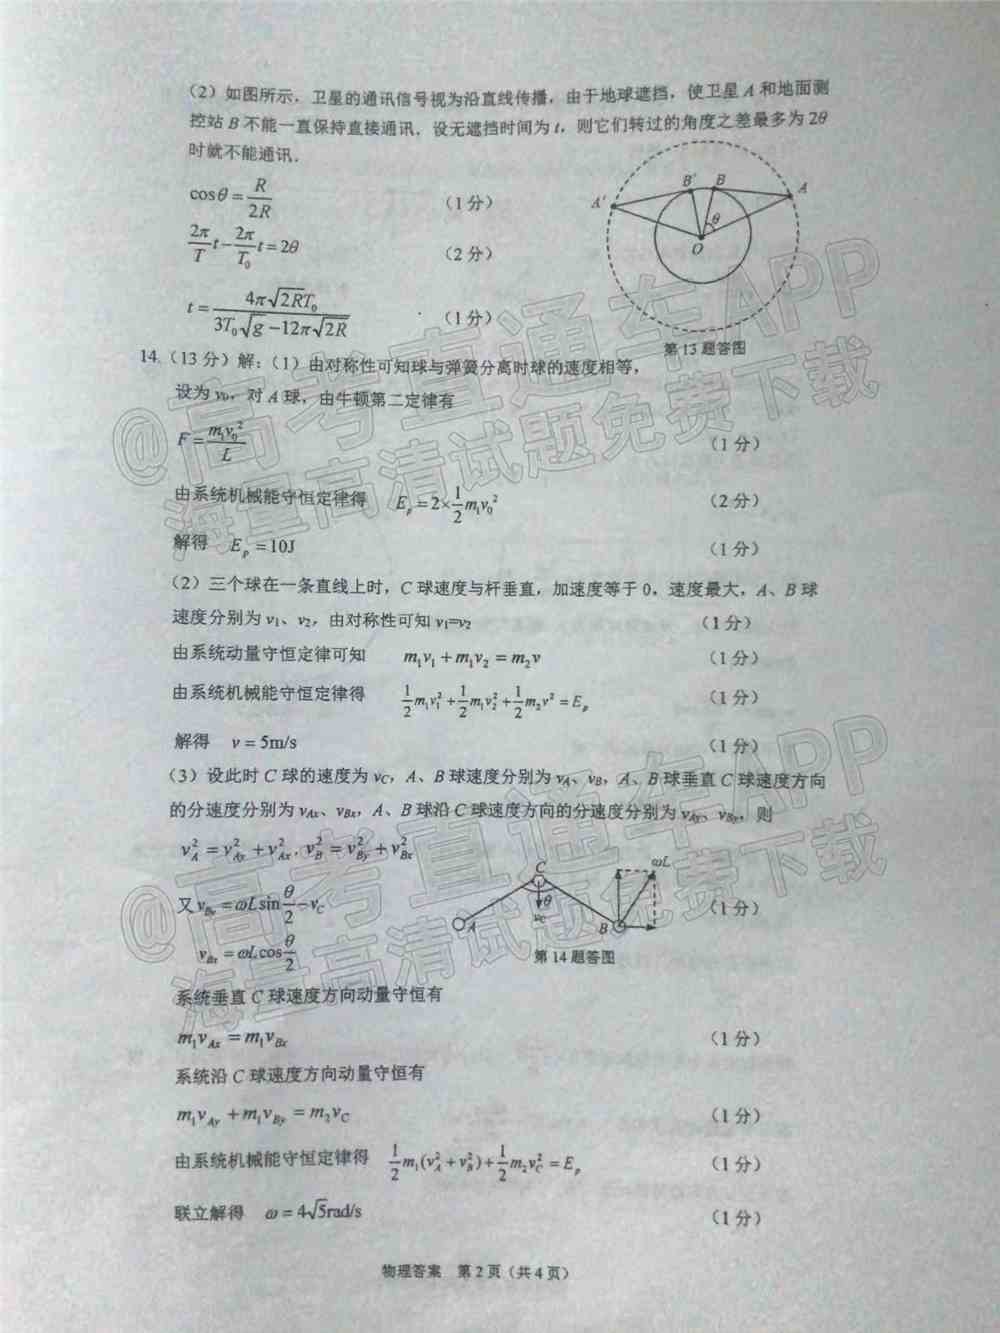 (2) 如图所示，卫星的通讯信号视为沿直线传播，由于地球遮挡，使卫星 A 和地面测
控站 B 不能一直保持直接通讯．设无遮挡时间为 t，则它们转过的角度之差最多为 2θ
时就不能通讯．
cosθ = R/2R （1分）
2π/T t − 2π/T₀ t = 2θ （2分）
t = 4π√2RT₀ / 3T₀√g − 12π√2R （1分）
A' B' B A θ O
第13题答图
14.（13分）解：（1）由对称性可知球与弹簧分离时球的速度相等，
设为 v₀，对 A 球，由牛顿第二定律有
F = m₁v₀²/L （1分）
由系统机械能守恒定律得 Eₚ = 2×½m₁v₀² （2分）
解得 Eₚ = 10J （1分）
（2）三个球在一条直线上时，C 球速度与杆垂直，加速度等于 0，速度最大，A、B 球
速度分别为 v₁、v₂，由对称性可知 v₁=v₂ （1分）
由系统动量守恒定律可知 m₁v₁ + m₁v₂ = m₂v （1分）
由系统机械能守恒定律得 ½m₁v₁² + ½m₁v₂² + ½m₂v² = Eₚ （1分）
解得 v = 5m/s （1分）
（3）设此时 C 球的速度为 v_C，A、B 球速度分别为 v_A、v_B，A、B 球垂直 C 球速度方向
的分速度分别为 v_Ax、v_Bx，A、B 球沿 C 球速度方向的分速度分别为 v_Ay、v_By，则
v_A² = v_Ay² + v_Ax²，v_B² = v_By² + v_Bx²
又 v_By = ωL sin θ/2 − v_C （1分）
v_Bx = ωL cos θ/2
A C θ v_C B ωL
第14题答图
系统垂直 C 球速度方向动量守恒有
m₁v_Ax = m₁v_Bx （1分）
系统沿 C 球速度方向动量守恒有
m₁v_Ay + m₁v_By = m₂v_C （1分）
由系统机械能守恒定律得 ½m₁(v_A² + v_B²) + ½m₂v_C² = Eₚ （1分）
联立解得 ω = 4√5rad/s （1分）
物理答案 第2页（共4页）
@高考直通车APP
海量高清试题免费下载
@高考直通车APP
海量高清试题免费下载